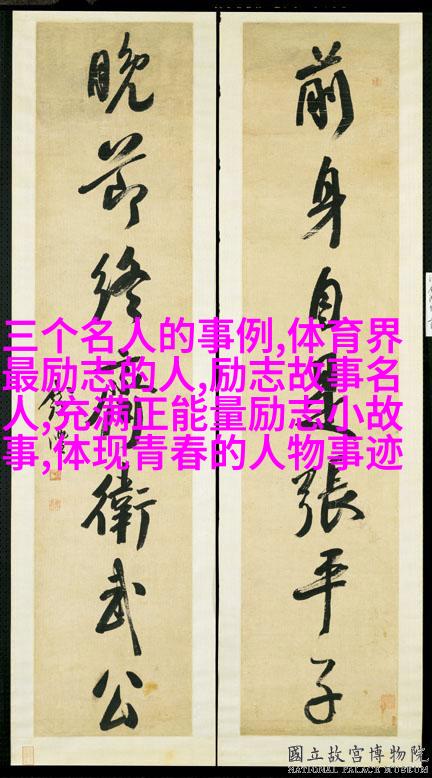 前身自是張平子
晚節終衛武公
三个名人的事例,体育界
最励志的人,励志故事名
人,充满正能量励志小故
事,体现青春的人物事迹
國立故宮博物院
NATIONAL PALACE MUSEUM